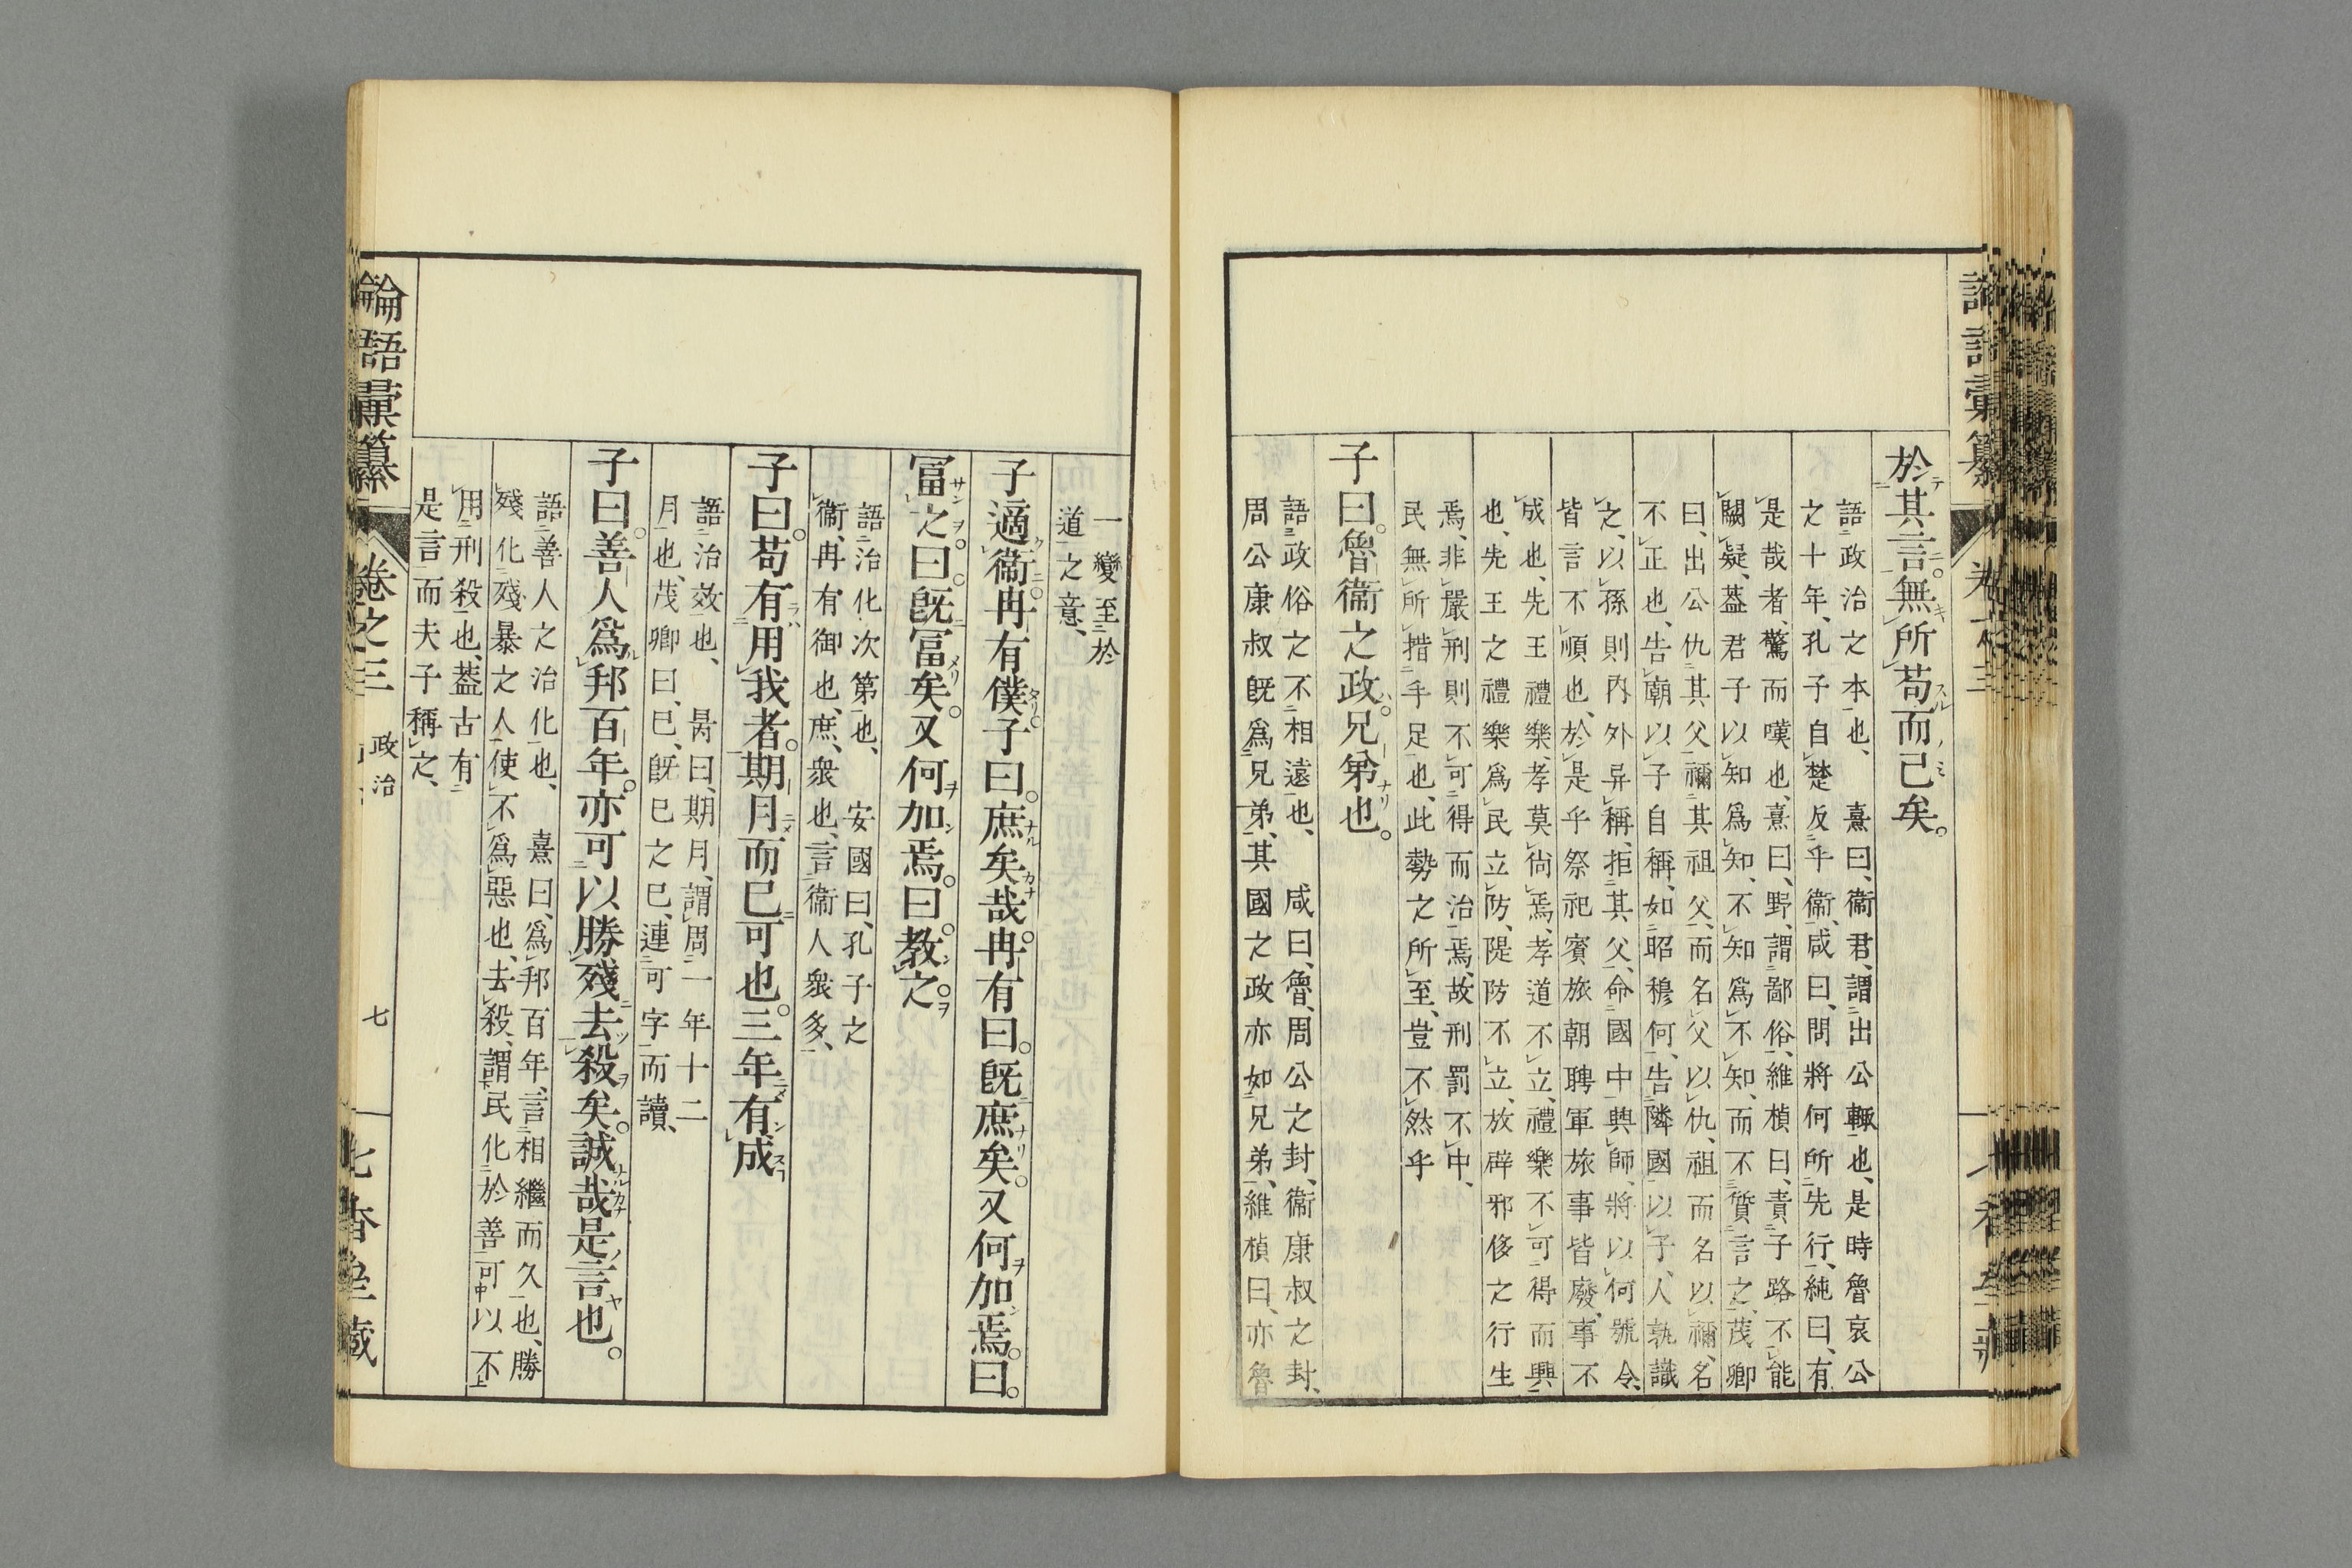 於其言無所苟而已矣。
語政治之本也、　熹曰、衞君、謂出公輒也、是時魯哀公
之十年、孔子自楚反乎衞、咸曰、問將何所先行、純曰、有
是哉者、驚而嘆也、熹曰、野、謂鄙俗、維楨曰、責子路不能
闕疑、葢君子以知爲知、不知爲不知、而不質言之、茂卿
曰、出公仇其父禰其祖父、而名父以仇、祖而名以禰、名
不正也、告廟以子自稱、如昭穆何、告隣國以子、人孰識
之、以孫則內外异稱、拒其父、命國中興師、將以何號令、
皆言不順也、於是乎祭祀賓旅朝聘軍旅事皆廢、事不
成也、先王禮樂、孝莫尙焉、孝道不立、禮樂不可得而興
也、先王之禮樂爲民立防、隄防不立、放辟邪侈之行生
焉、非嚴刑則不可得而治焉、故刑罰不中、
民無所措手足也、此勢之所至、豈不然乎
子曰。魯衞之政。兄弟也。
語政俗之不相遠也、　咸曰、魯、周公之封、衞康叔之封、
周公康叔旣爲兄弟、其國之政亦如兄弟、維楨曰、亦魯
一變至於
道之意、
子適衞。冉有僕。子曰。庶矣哉。冉有曰。旣庶矣。又何加焉。曰。
富之。曰。旣富矣。又何加焉。曰。教之。
語治化次第也、　安國曰、孔子之
衞、冉有御也、庶、衆也、言衞人衆多、
子曰。苟有用我者。期月而已可也。三年有成
語治效也、　昺曰、期月、謂周一年十二
月也、茂卿曰、已、旣已之已、連可字而讀、
子曰。善人爲邦百年。亦可以勝殘去殺矣。誠哉是言也。
語善人之治化也、　熹曰、爲邦百年、言相繼而久也、勝
殘化殘暴之人使不爲惡也、去殺、謂民化於善可以不
用刑殺也、葢古有
是言而夫子稱之、
論語彙纂　卷之三　政治　七